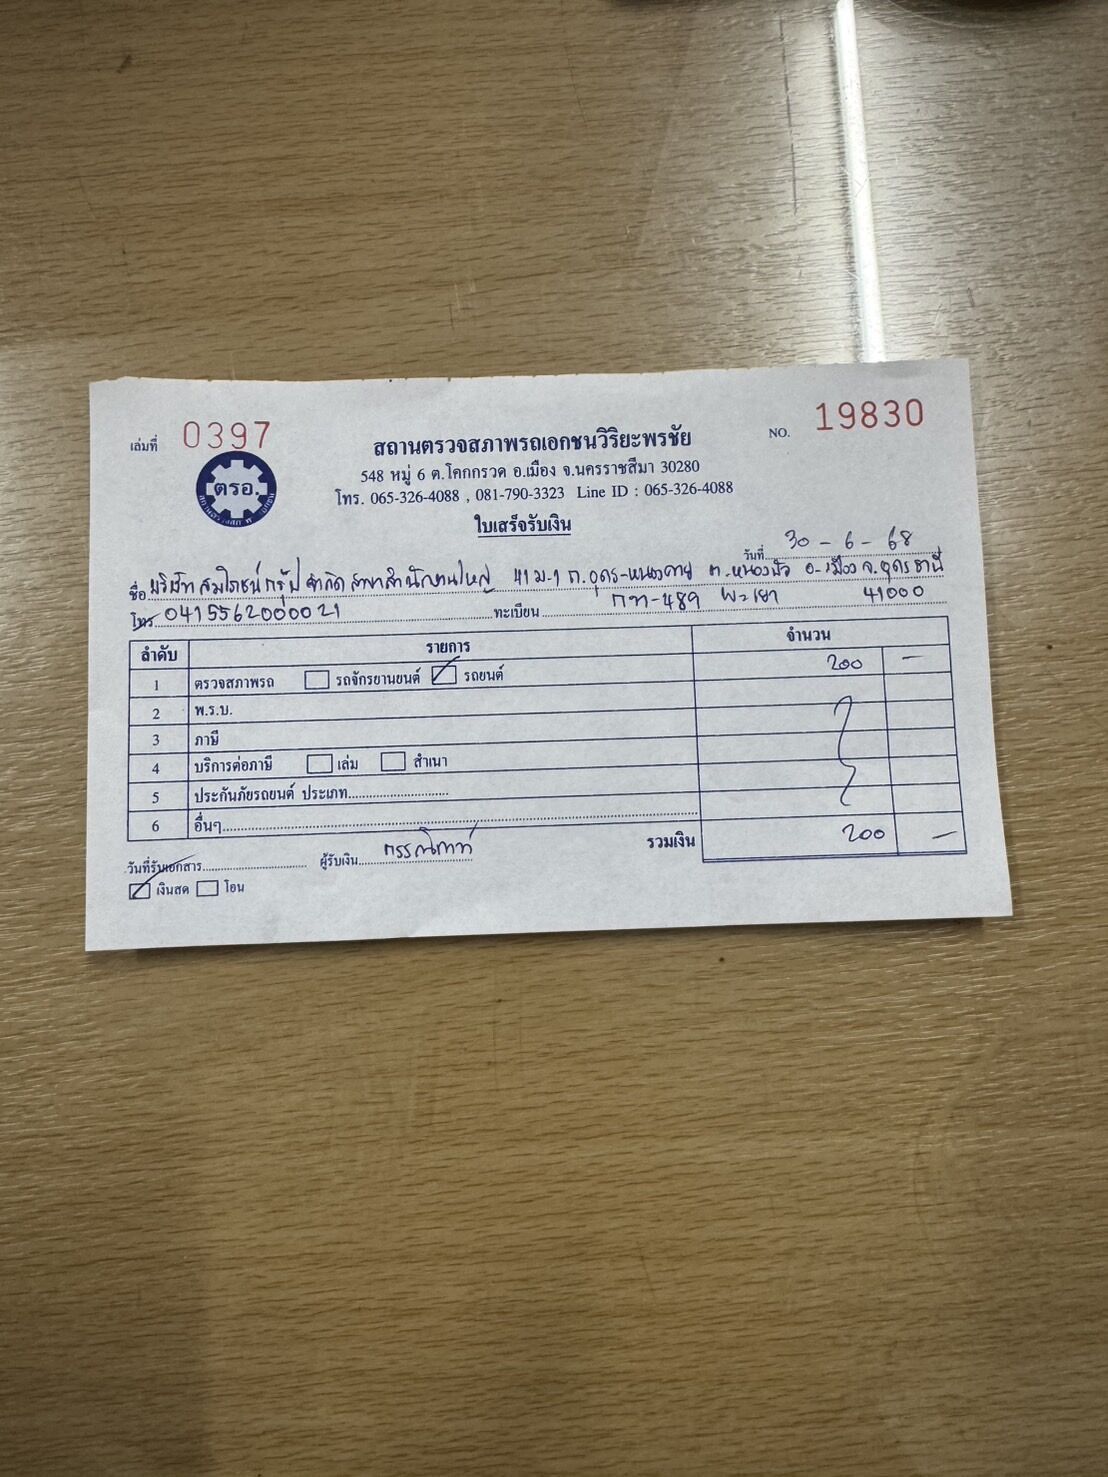 เล่มที่ 0397
NO. 19830
สถานตรวจสภาพรถเอกชนวิริยะพรชัย
ตรอ.
548 หมู่ 6 ต.โคกกรวด อ.เมือง จ.นครราชสีมา 30280
โทร. 065-326-4088 , 081-790-3323 Line ID : 065-326-4088
ใบเสร็จรับเงิน
วันที่ 30-6-68
ชื่อ บริษัท สมโภชน์ กรุ๊ป จำกัด สาขาสำนักงานใหญ่ 41 ม.1 ถ.อุดร-หนองคาย ต.หนองบัว อ.เมือง จ.อุดรธานี
โทร. 0415562000021 ทะเบียน กท-489 พะเยา 41000
ลำดับ รายการ จำนวน
1 ตรวจสภาพรถ รถจักรยานยนต์ รถยนต์ 200 -
2 พ.ร.บ.
3 ภาษี
4 บริการต่อภาษี เล่ม สำเนา
5 ประกันภัยรถยนต์ ประเภท
6 อื่นๆ
รวมเงิน 200 -
วันที่รับเอกสาร ผู้รับเงิน
เงินสด โอน